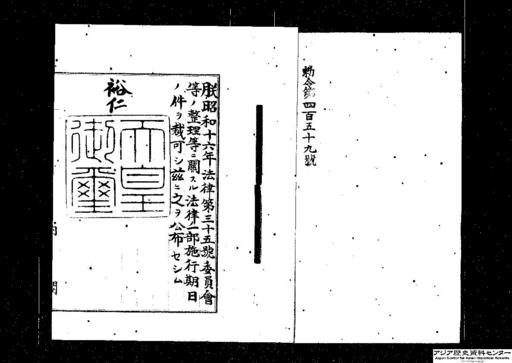 勅令第四百五十九號
朕昭和十六年法律第三十五號委員會
等ノ整理等ニ關スル法律一部施行期日
ノ件ヲ裁可シ茲ニ之ヲ公布セシム
裕仁
天皇
御璽
内閣
アジア歴史資料センター
Japan Center for Asian Historical Records